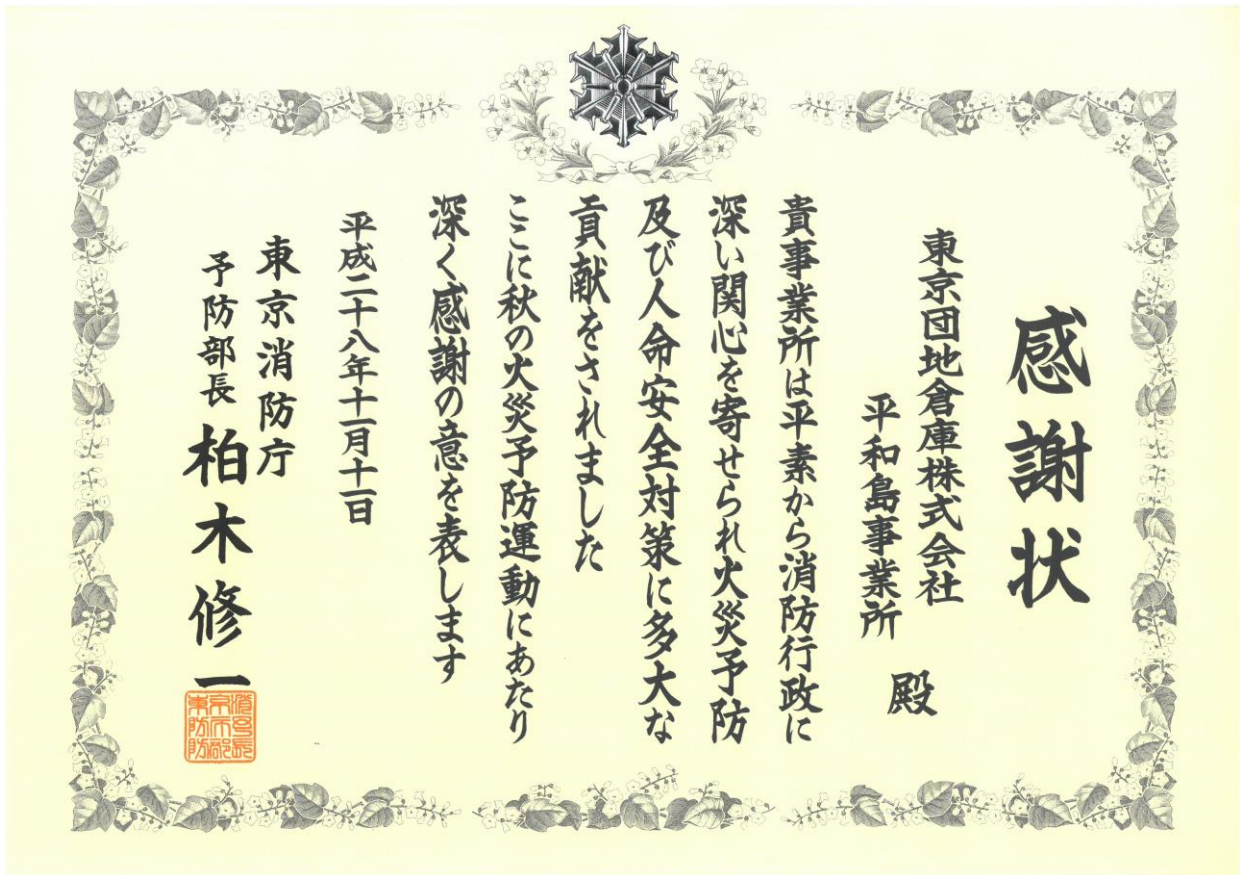 感謝状
東京団地倉庫株式会社
平和島事業所 殿
貴事業所は平素から消防行政に
深い関心を寄せられ火災予防
及び人命安全対策に多大な
貢献をされました
ここに秋の火災予防運動にあたり
深く感謝の意を表します
平成二十八年十一月十一日
東京消防庁
予防部長 柏木修一
東京消
防庁予
防部長